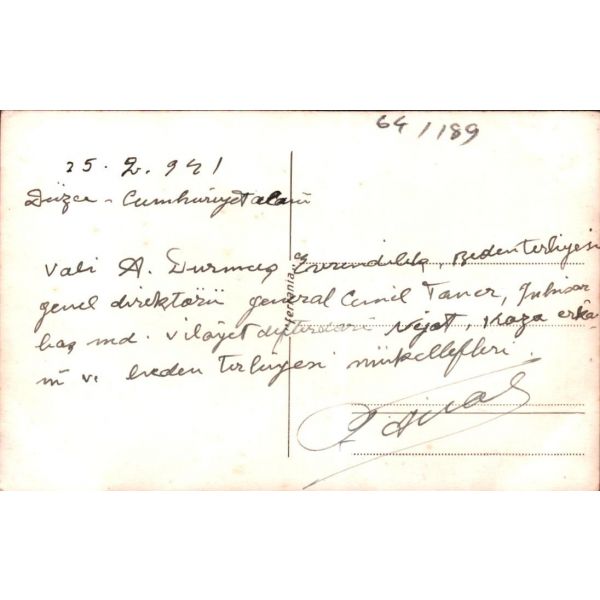 64/189
25.2.941
Düzce - Cumhuriyet alanı
Vali A. Durmuş Evrendilek, Beden terbiyesi
genel direktörü general Cemil Taner, İnhisar
baş md. vilâyet defterdarı Nejat, Kaza erkâ-
nı ve beden terbiyesi mükellefleri.
ferrania